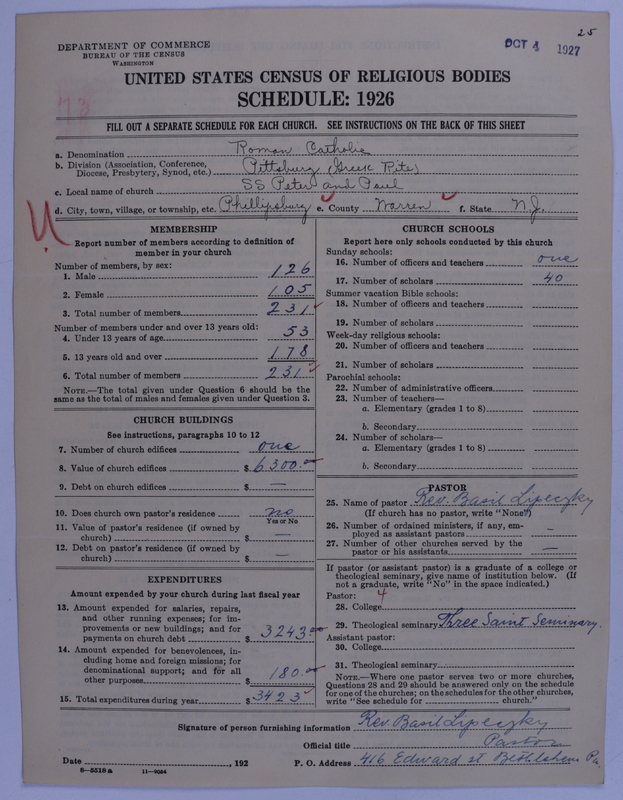 25
DEPARTMENT OF COMMERCE
BUREAU OF THE CENSUS
WASHINGTON
OCT 4 1927
UNITED STATES CENSUS OF RELIGIOUS BODIES
SCHEDULE: 1926
73
FILL OUT A SEPARATE SCHEDULE FOR EACH CHURCH. SEE INSTRUCTIONS ON THE BACK OF THIS SHEET
a. Denomination Roman Catholic
b. Division (Association, Conference, Diocese, Presbytery, Synod, etc.) Pittsburg (Greek Rite)
c. Local name of church SS Peter and Paul
d. City, town, village, or township, etc. Phillipsburg e. County Warren f. State N.J.
MEMBERSHIP
Report number of members according to definition of
member in your church
Number of members, by sex:
1. Male 126
2. Female 105
3. Total number of members 231
Number of members under and over 13 years old:
4. Under 13 years of age 53
5. 13 years old and over 178
6. Total number of members 231
NOTE.—The total given under Question 6 should be
same as the total of males and females given under Question 3.
CHURCH BUILDINGS
See instructions, paragraphs 10 to 12
7. Number of church edifices one
8. Value of church edifices $ 6300.00
9. Debt on church edifices $ —
10. Does church own pastor's residence no
Yes or No
11. Value of pastor's residence (if owned by
church) $ —
12. Debt on pastor's residence (if owned by
church) $ —
EXPENDITURES
Amount expended by your church during last fiscal year
13. Amount expended for salaries, repairs,
and other running expenses; for im-
provements or new buildings; and for
payments on church debt $ 3243.00
14. Amount expended for benevolences, in-
cluding home and foreign missions; for
denominational support; and for all
other purposes $ 180.00
15. Total expenditures during year $ 3423
CHURCH SCHOOLS
Report here only schools conducted by this church
Sunday schools:
16. Number of officers and teachers one
17. Number of scholars 40
Summer vacation Bible schools:
18. Number of officers and teachers
19. Number of scholars
Week-day religious schools:
20. Number of officers and teachers
21. Number of scholars
Parochial schools:
22. Number of administrative officers
23. Number of teachers—
a. Elementary (grades 1 to 8)
b. Secondary
24. Number of scholars—
a. Elementary (grades 1 to 8)
b. Secondary
PASTOR
25. Name of pastor Rev. Basil Lipeczky
(If church has no pastor, write "None")
26. Number of ordained ministers, if any, em-
ployed as assistant pastors —
27. Number of other churches served by the
pastor or his assistants —
If pastor (or assistant pastor) is a graduate of a college or
theological seminary, give name of institution below. (If
not a graduate, write "No" in the space indicated.)
Pastor: 4
28. College
29. Theological seminary Three Saint Seminary.
Assistant pastor:
30. College
31. Theological seminary
NOTE.—Where one pastor serves two or more churches,
Questions 28 and 29 should be answered only on the schedule
for one of the churches; on the schedules for the other churches,
write "See schedule for church."
Signature of person furnishing information Rev. Basil Lipeczky
Official title Pastor
Date , 192 P. O. Address 416 Edward st Bethlehem Pa.
8—5318a 11—9064